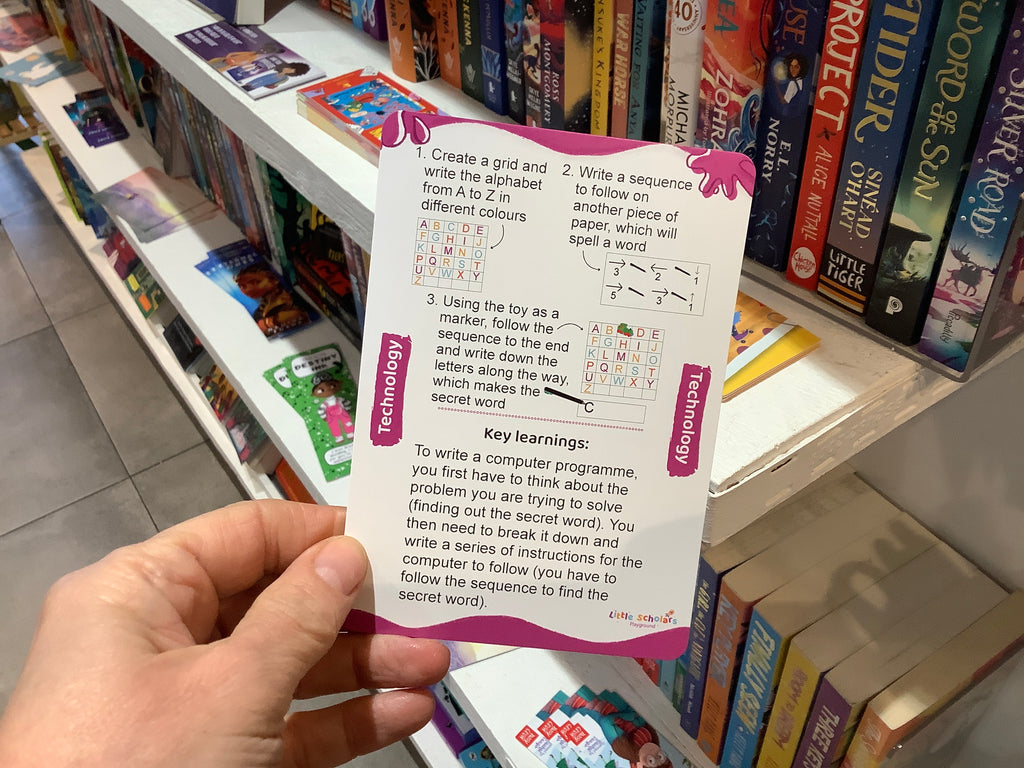 1. Create a grid and
write the alphabet
from A to Z in
different colours
A B C D E
F G H I J
K L M N O
P Q R S T
U V W X Y
Z
2. Write a sequence
to follow on
another piece of
paper, which will
spell a word
3 2 1
5 3 1
3. Using the toy as a
marker, follow the
sequence to the end
and write down the
letters along the way,
which makes the
secret word
A B D E
F G H I J
K L M N O
P Q R S T
U V W X Y
Z
C
Technology
Technology
Key learnings:
To write a computer programme,
you first have to think about the
problem you are trying to solve
(finding out the secret word). You
then need to break it down and
write a series of instructions for the
computer to follow (you have to
follow the sequence to find the
secret word).
Little Scholars
Playground
KENNA
ROSS
MONTGOMERY
KENSUKE'S KINGDOM
WAITING FOR ANYA
WAR HORSE
40
MICHA
MORPU
ZOHRA
E.L.
NORRY
PROJECT
ALICE NUTTALL
STIDER
SINÉAD
O'HART
LITTLE
TIGER
SWORD of
the SUN
SILVER
ROAD
Piccadilly
DESTINY